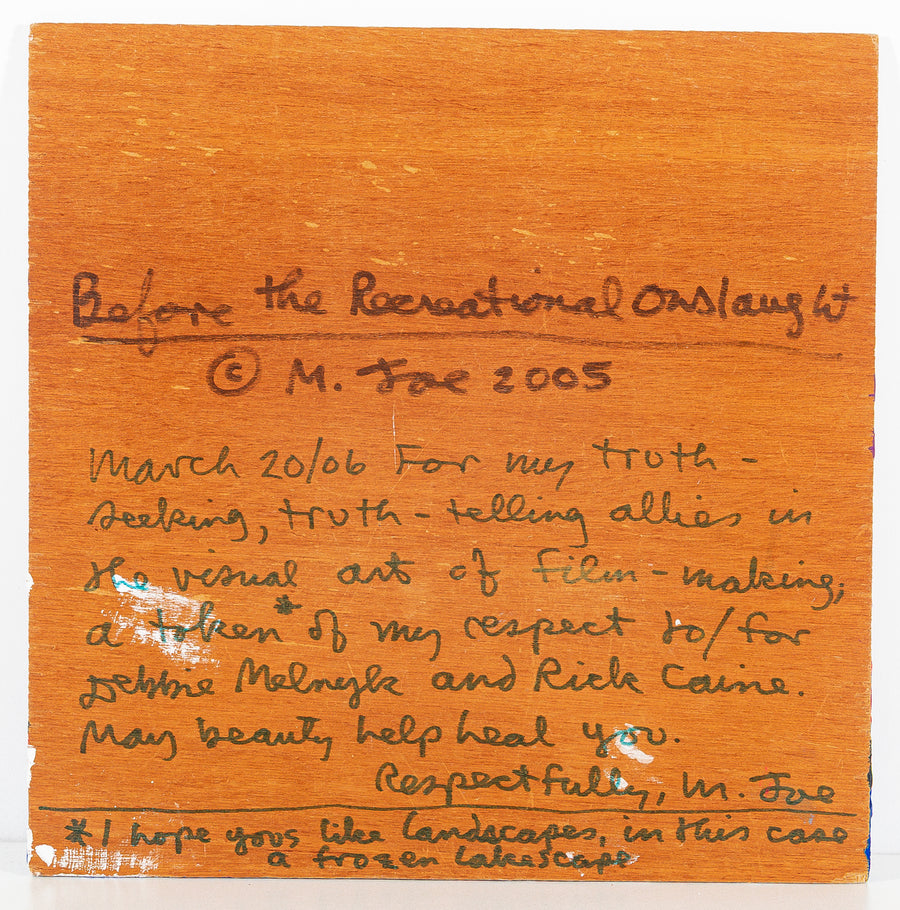 Before the Recreational Onslaught
© M. Joe 2005
March 20/06 For my truth-
seeking, truth-telling allies in
the visual art of film-making;
a token* of my respect to/for
Debbie Melnyk and Rick Caine.
May beauty help heal you.
Respectfully, M. Joe
* I hope yous like landscapes, in this case
a frozen lakescape